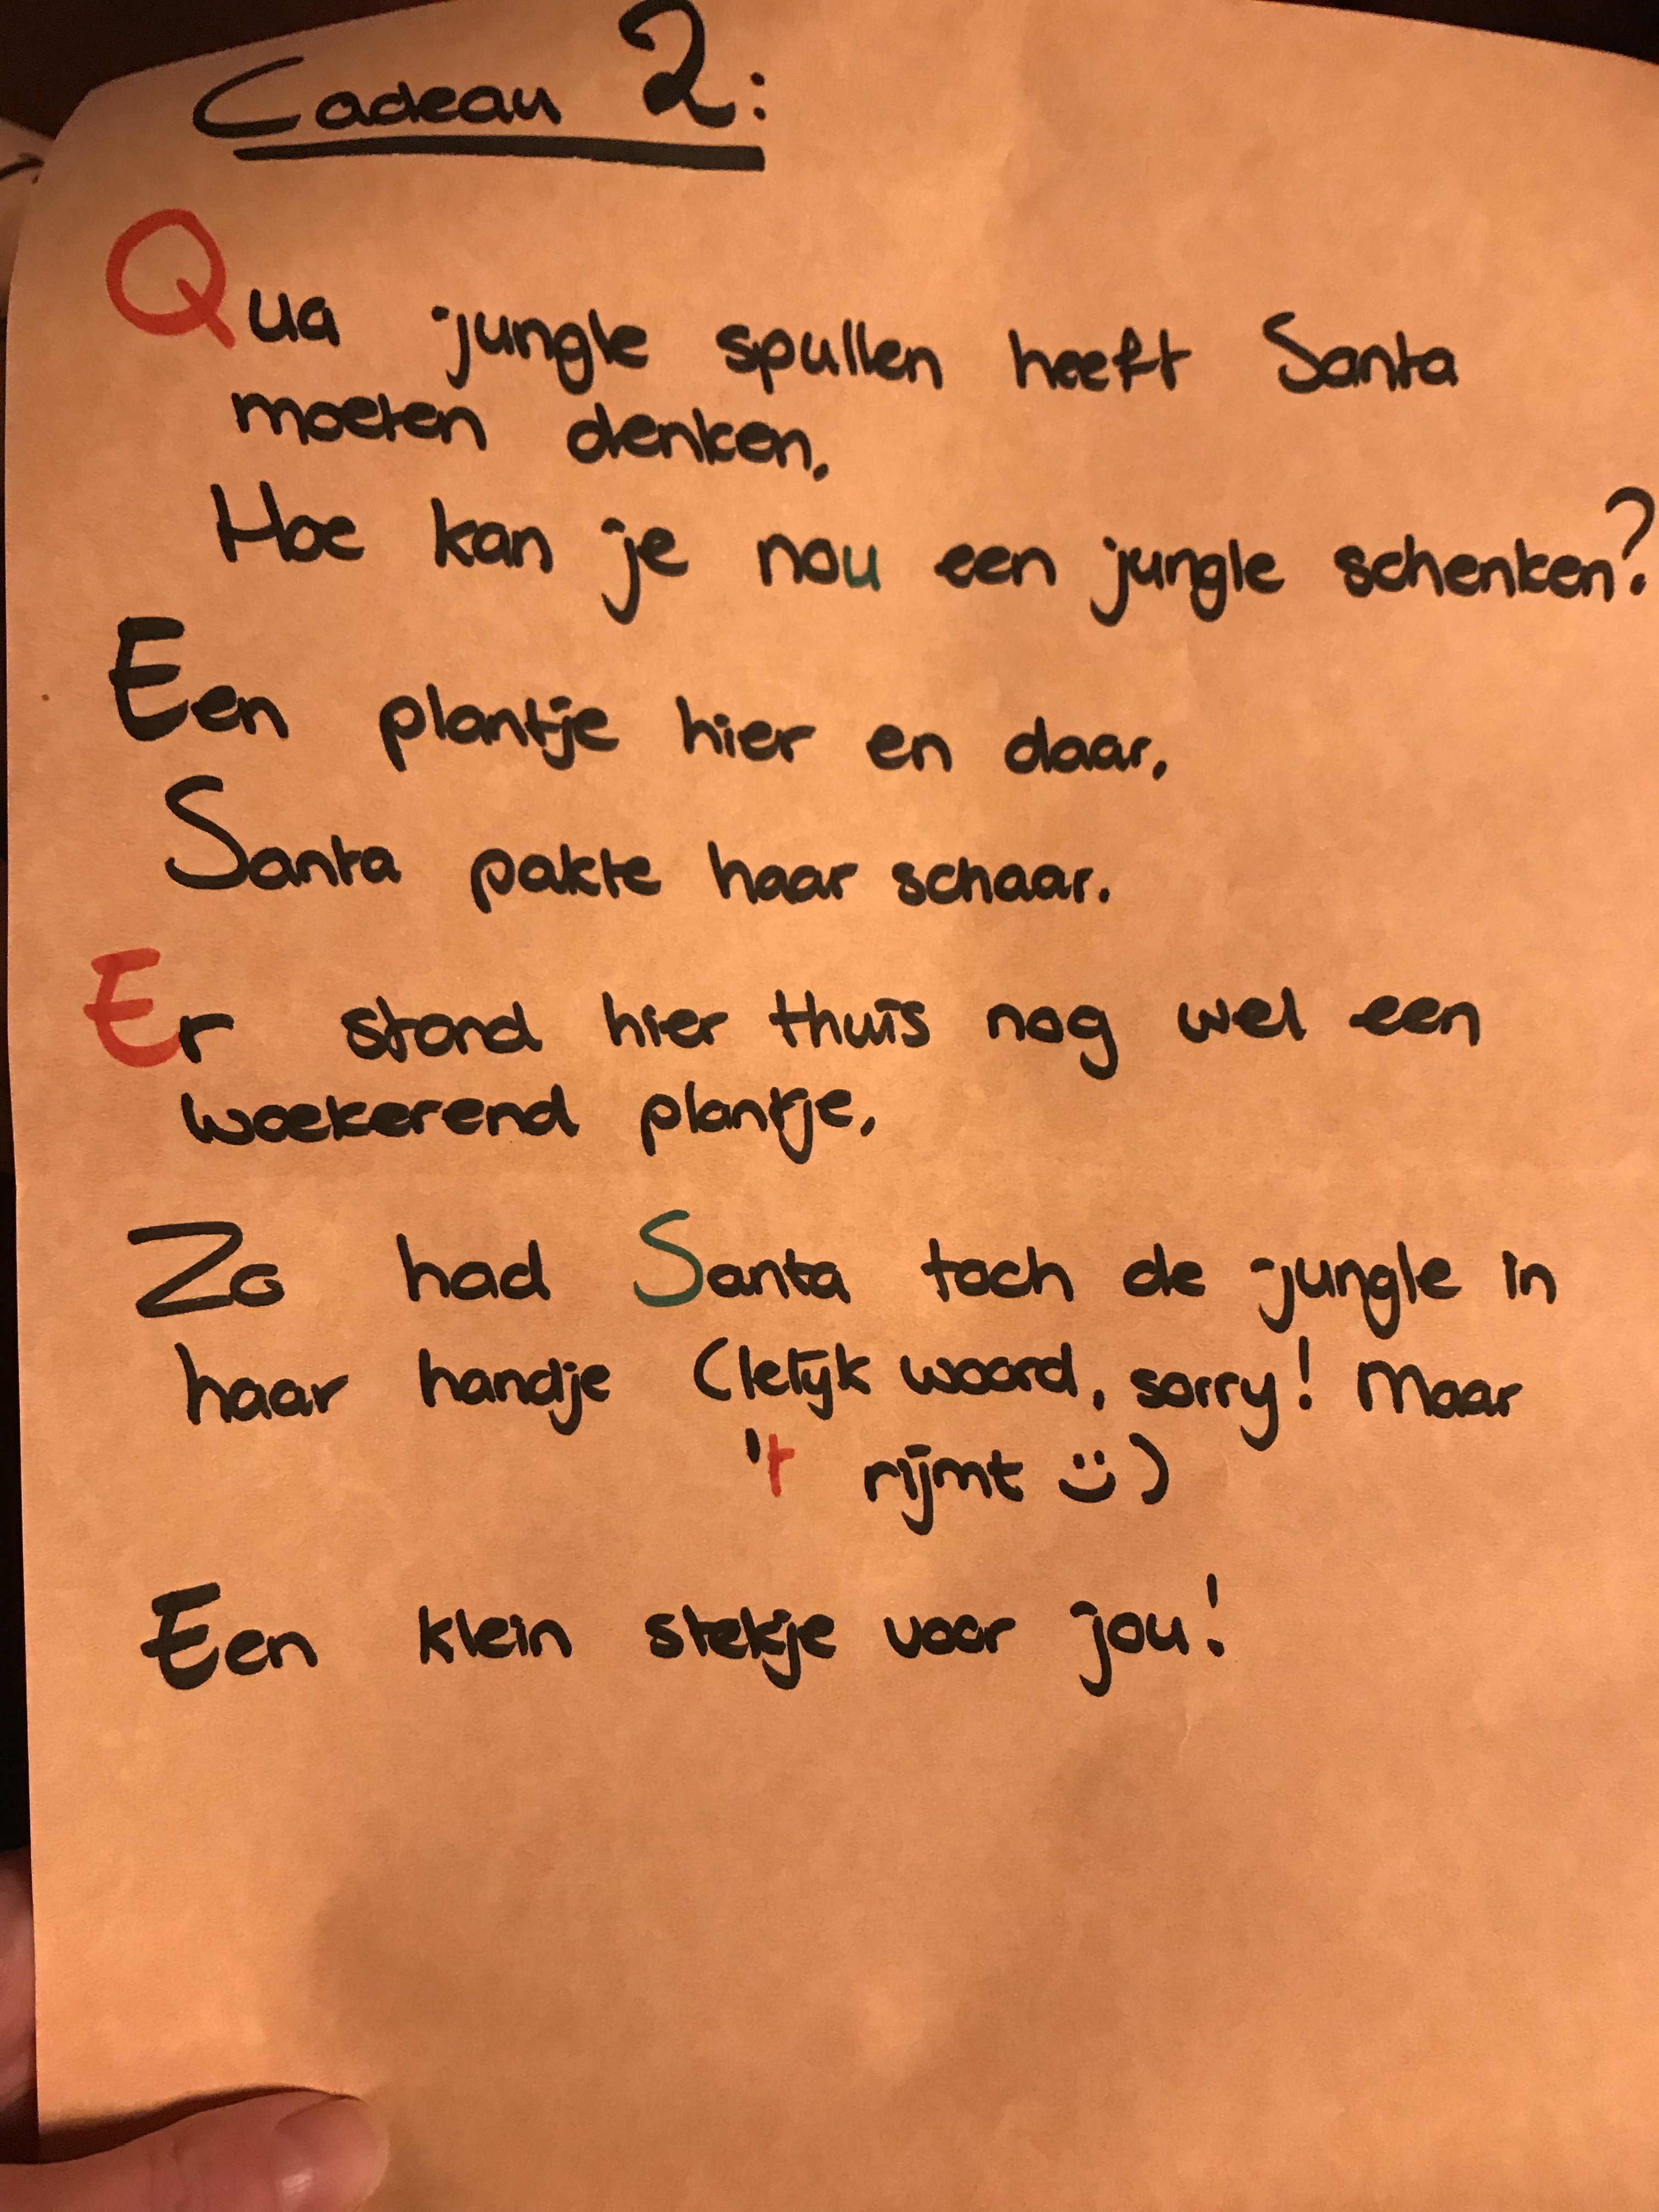 Cadeau 2:
Qua jungle spullen heeft Santa
moeten denken,
Hoe kan je nou een jungle schenken?
Een plantje hier en daar,
Santa pakte haar schaar.
Er stond hier thuis nog wel een
woekerend plantje,
Zo had Santa toch de jungle in
haar handje (lelijk woord, sorry! Maar
't rijmt ü)
Een klein stekje voor jou!